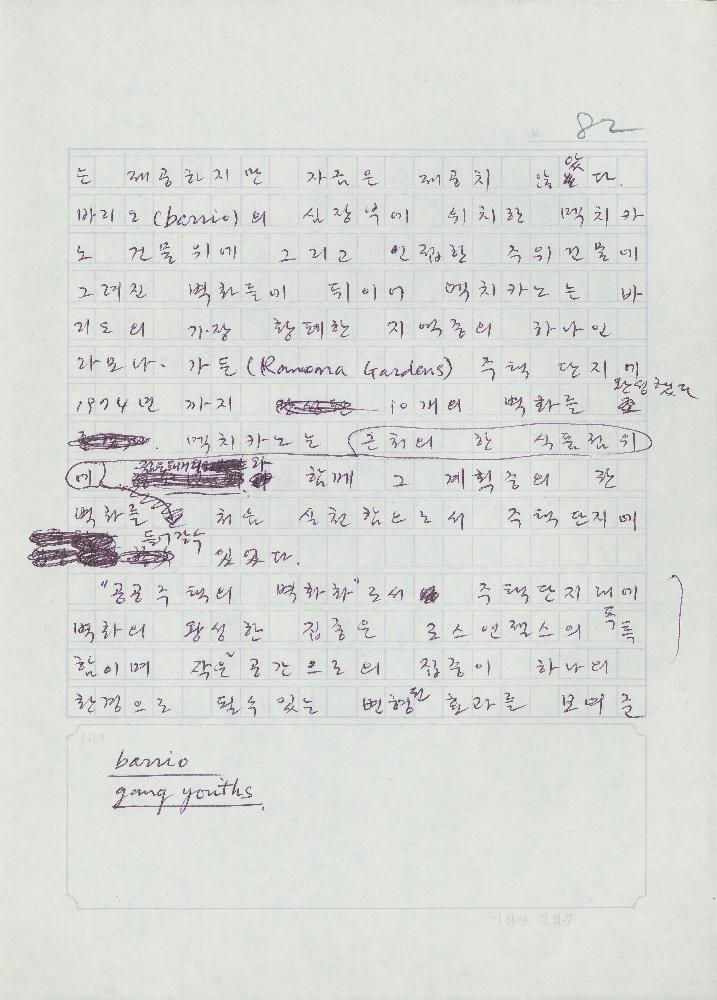 82
는 제공하지만 자금은 제공치 않았다.
바리오(barrio)의 심장부에 위치한 멕시카
노 건물위에 그리고 인접한 주위건물에
그려진 벽화들에 뒤이어 멕치카노는 바
리오의 가장 황폐한 지역중의 하나인
라모나·가든(Ramona Gardens) 주택 단지에
1974년 까지 10개의 벽화를 완성했다
멕치카노는 근처의 한 식품점위
에 와 함께 그 계획중의 한
벽화를 처음 실천함으로서 주택단지에
들어갈수 있었다.
"공공주택의 벽화화"로서 주택단지내에
벽화의 왕성한 집중은 로스앤젤스의 독특
함이며 작은 공간으로의 집중이 하나의
환경으로 될수있는 변형된 효과를 보여준
barrio
gang youths
미진사 편집부